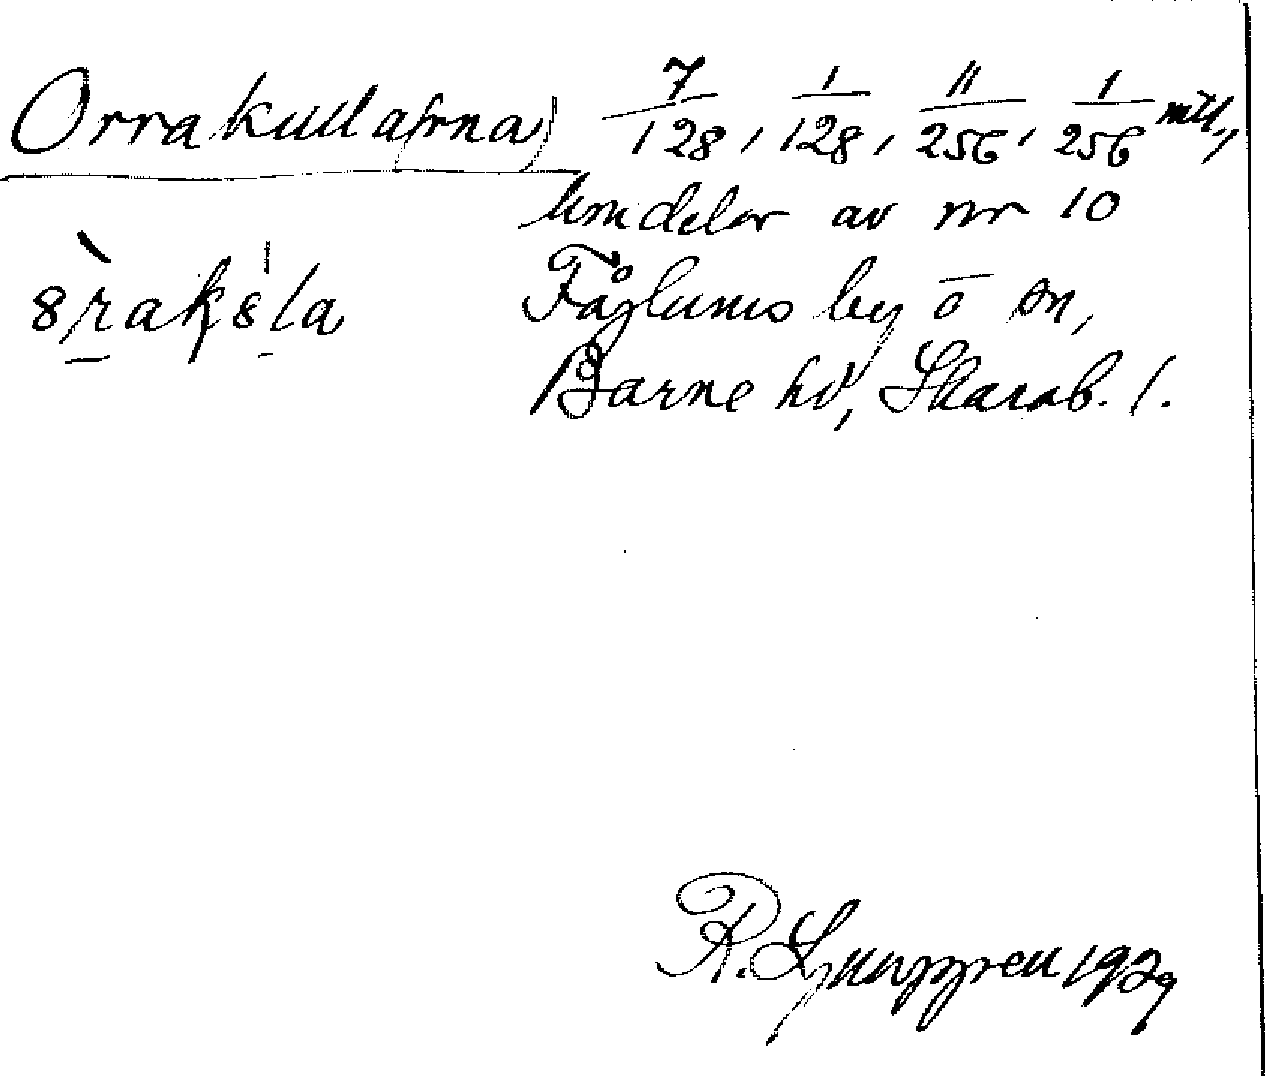 Orrakulla(rna) 7/128, 1/128, 11/256, 1/256 mtl,
lmdelar av nr 10
Fåglums by o sn,
Barne hd, Skarab. l.
R. Ljunggren 1929